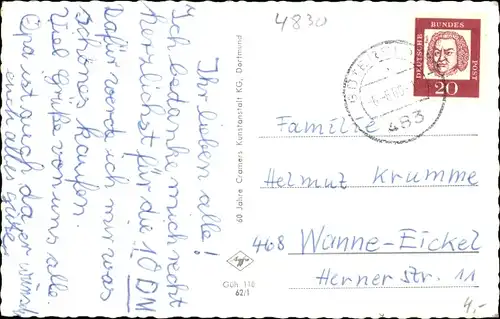 4830
Ihr lieben alle!
Ich bedanke mich recht
herzlichst für die 10 DM
Dafür werde ich mir was
schönes kaufen.
Viel Grüße von uns alle
Opa ist auch da er wünscht
euch alles gute
60 Jahre Cramers Kunstanstalt KG, Dortmund
Agfa
Güh 116
62/1
DEUTSCHE
BUNDES
POST
20
483
Familie
Helmut Krumme
468 Wanne-Eickel
Herner Str. 11
4,-